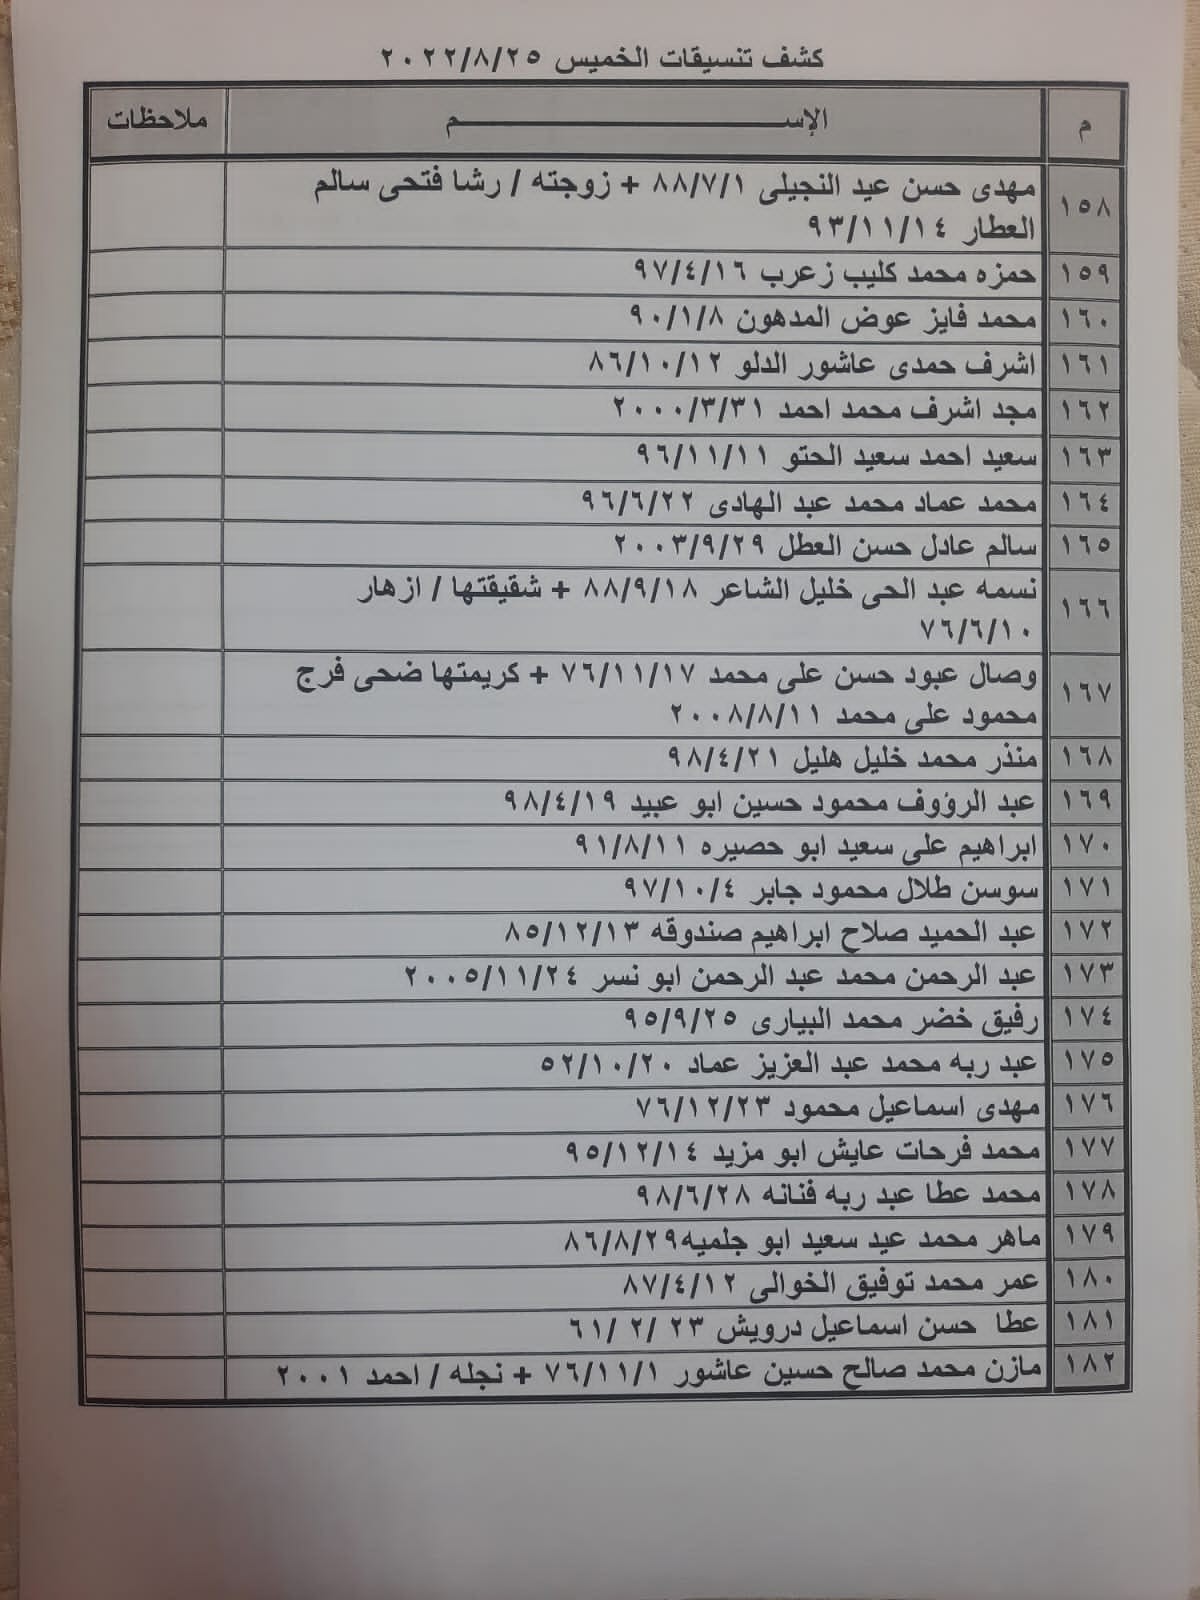 كشف تنسيقات الخميس ٢٠٢٢/٨/٢٥
م الإســـــــــــم ملاحظات
١٥٨ مهدى حسن عيد النجيلى ٨٨/٧/١ + زوجته / رشا فتحى سالم
العطار ٩٣/١١/١٤
١٥٩ حمزه محمد كليب زعرب ٩٧/٤/١٦
١٦٠ محمد فايز عوض المدهون ٩٠/١/٨
١٦١ اشرف حمدى عاشور الدلو ٨٦/١٠/١٢
١٦٢ مجد اشرف محمد احمد ٢٠٠٠/٣/٣١
١٦٣ سعيد احمد سعيد الحتو ٩٦/١١/١١
١٦٤ محمد عماد محمد عبد الهادى ٩٦/٦/٢٢
١٦٥ سالم عادل حسن العطل ٢٠٠٣/٩/٢٩
١٦٦ نسمه عبد الحى خليل الشاعر ٨٨/٩/١٨ + شقيقتها / ازهار
٧٦/٦/١٠
١٦٧ وصال عبود حسن على محمد ٧٦/١١/١٧ + كريمتها ضحى فرج
محمود على محمد ٢٠٠٨/٨/١١
١٦٨ منذر محمد خليل هليل ٩٨/٤/٢١
١٦٩ عبد الرؤوف محمود حسين ابو عبيد ٩٨/٤/١٩
١٧٠ ابراهيم على سعيد ابو حصيره ٩١/٨/١١
١٧١ سوسن طلال محمود جابر ٩٧/١٠/٤
١٧٢ عبد الحميد صلاح ابراهيم صندوقه ٨٥/١٢/١٣
١٧٣ عبد الرحمن محمد عبد الرحمن ابو نسر ٢٠٠٥/١١/٢٤
١٧٤ رفيق خضر محمد البيارى ٩٥/٩/٢٥
١٧٥ عبد ربه محمد عبد العزيز عماد ٥٢/١٠/٢٠
١٧٦ مهدى اسماعيل محمود ٧٦/١٢/٢٣
١٧٧ محمد فرحات عايش ابو مزيد ٩٥/١٢/١٤
١٧٨ محمد عطا عبد ربه فنانه ٩٨/٦/٢٨
١٧٩ ماهر محمد عيد سعيد ابو جلميه٨٦/٨/٢٩
١٨٠ عمر محمد توفيق الخوالى ٨٧/٤/١٢
١٨١ عطا حسن اسماعيل درويش ٢٣ /٢ /٦١
١٨٢ مازن محمد صالح حسين عاشور ٧٦/١١/١ + نجله / احمد ٢٠٠١